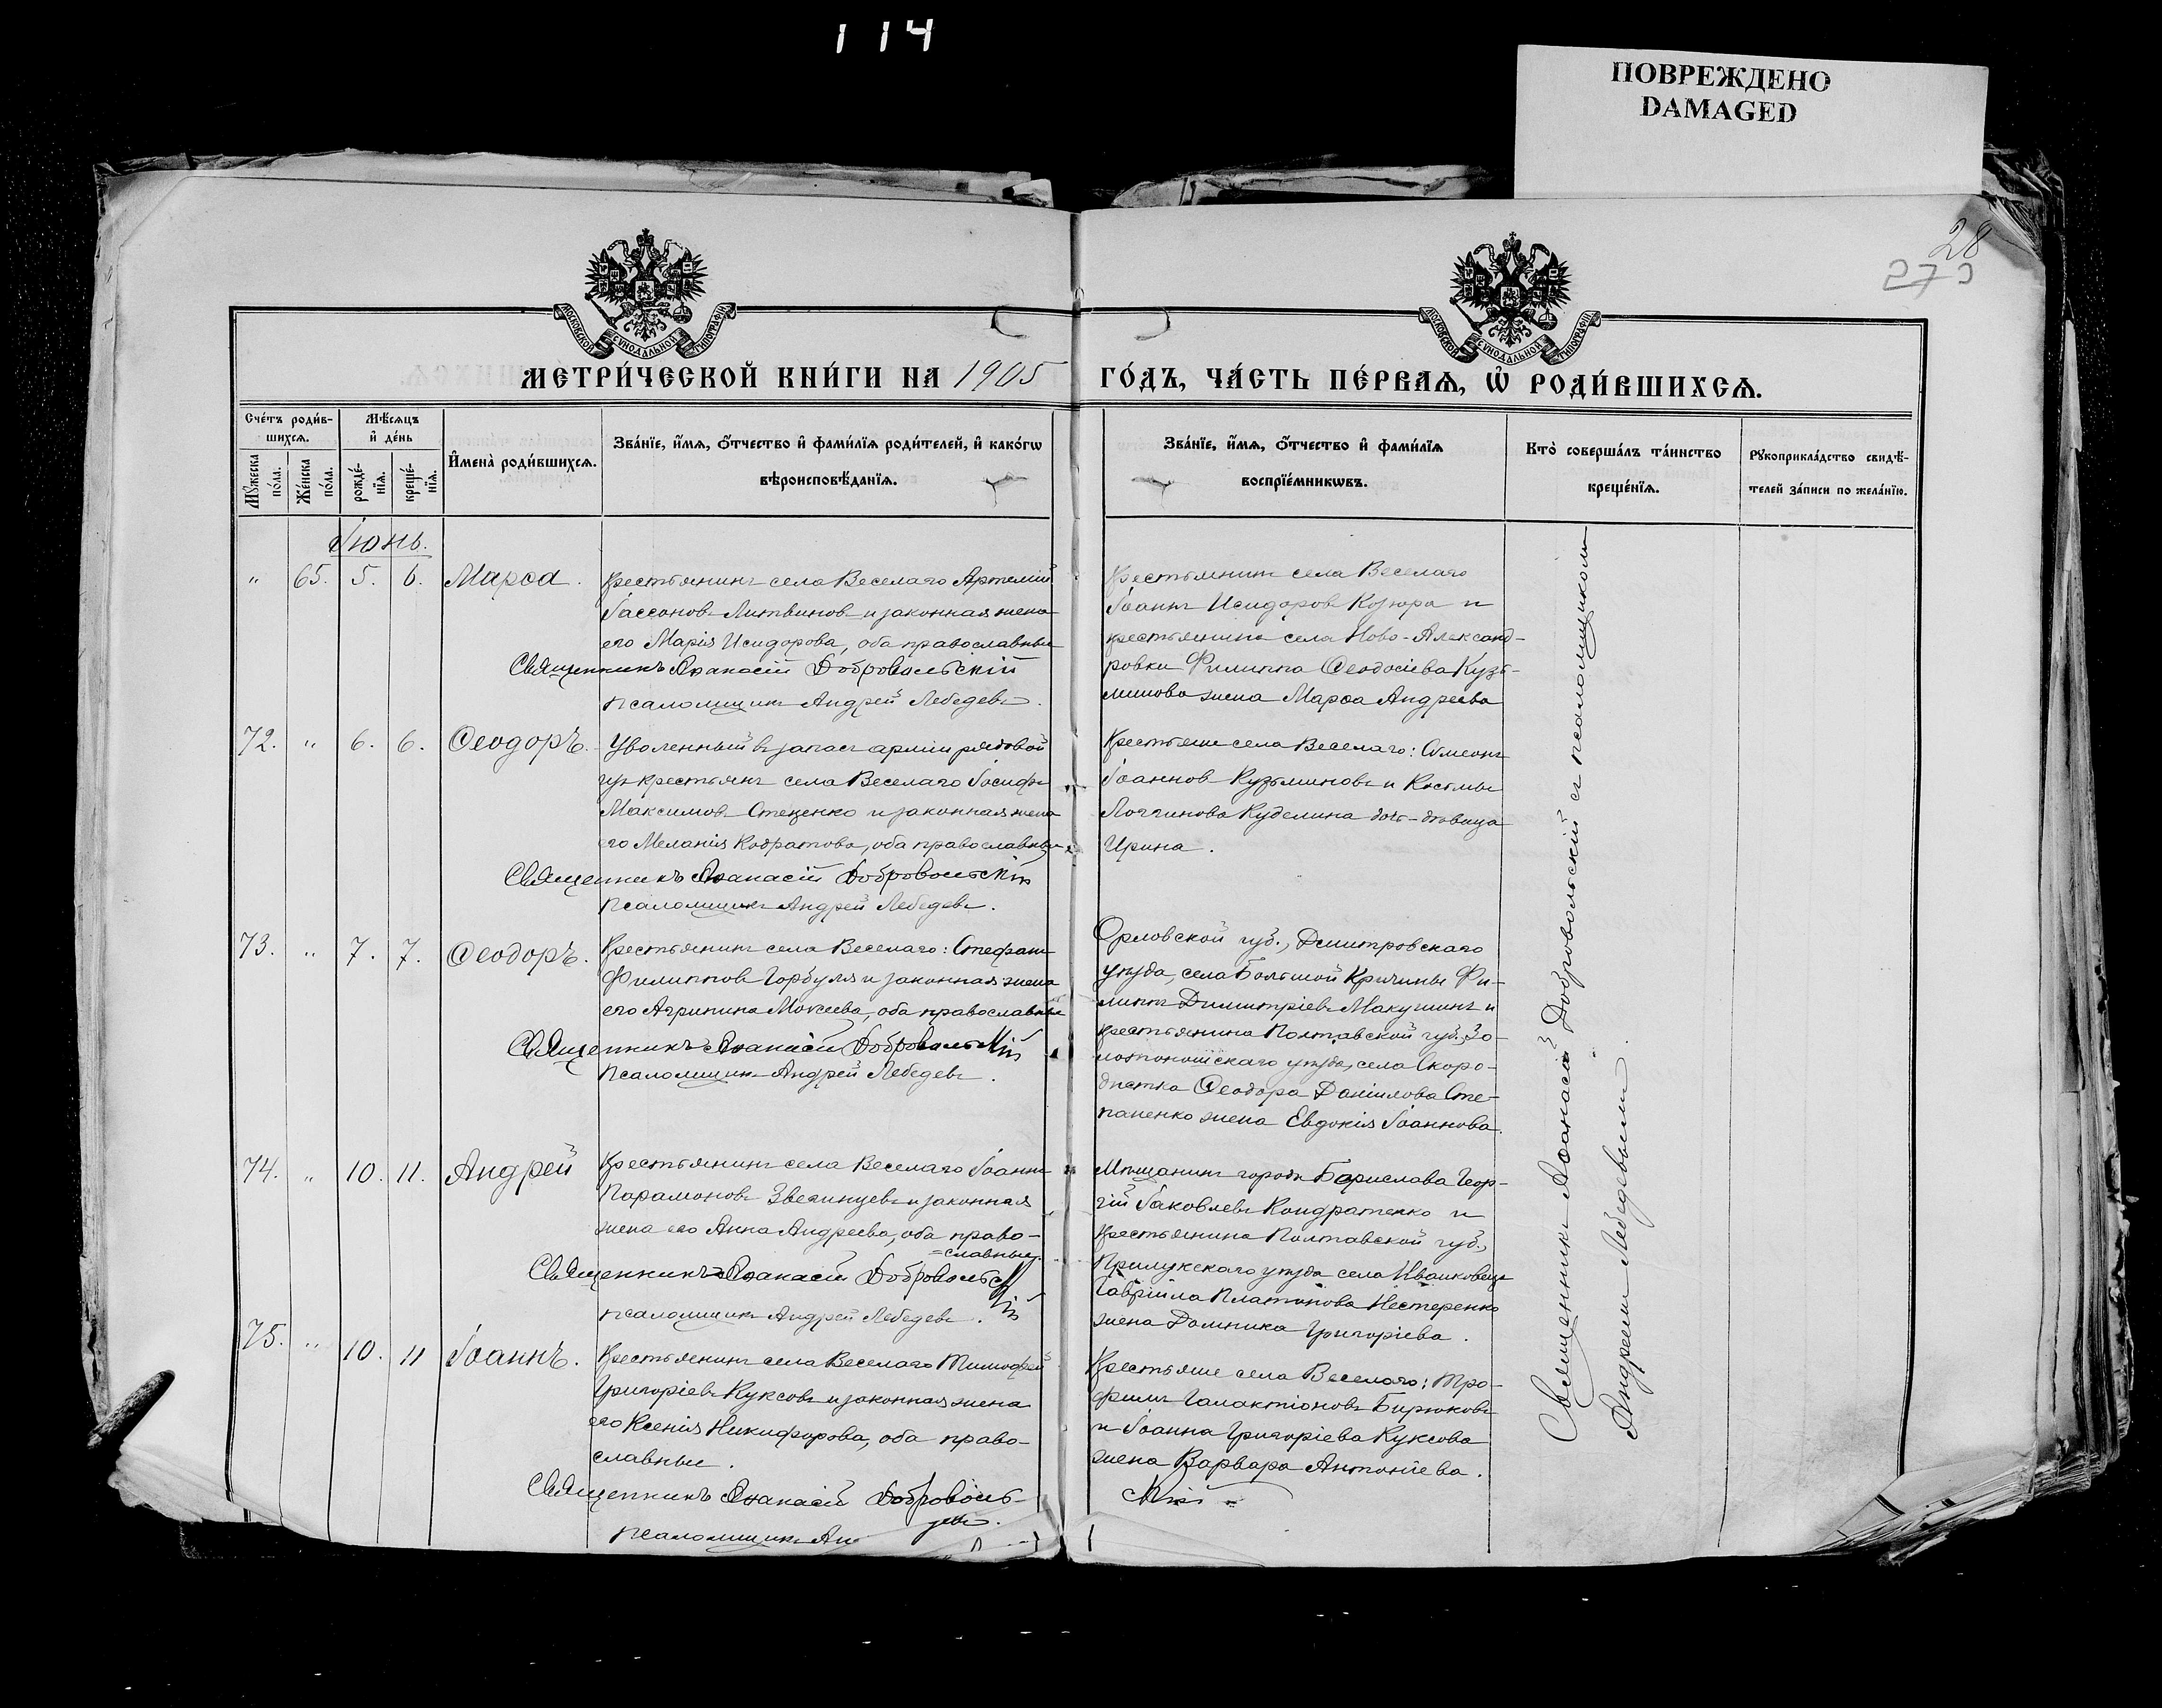 114
ПОВРЕЖДЕНО
DAMAGED
28
273
МОСКОВСКОЙ СѴНОДАЛЬНОЙ ТИПОГРАФІИ
МОСКОВСКОЙ СѴНОДАЛЬНОЙ ТИПОГРАФІИ
МЕТРИ́ЧЕСКОЙ КНИ́ГИ НА 1905 ГО́ДЪ, ЧА́СТЬ ПЕ́РВАѦ, Ѡ҆ РОДИ́ВШИХСѦ.
Сче́тъ роди́в-
шихсѧ.
Мꙋ́жеска по́ла.
Же́нска по́ла.
Мѣ́сѧцъ и҆ де́нь
рожде́-нїѧ.
креще́-нїѧ.
И҆мена̀ роди́вшихсѧ.
Зва́нїе, и҆́мѧ, ѻ҆́тчество и҆ фами́лїѧ роди́телей, и҆ како́гѡ
вѣроисповѣ́данїѧ.
Зва́нїе, и҆́мѧ, ѻ҆́тчество и҆ фами́лїѧ
воспрїе́мникѡвъ.
Кто̀ соверша́лъ та́инство
креще́нїѧ.
Рꙋкоприкла́дство свидѣ́-
телей за́писи по жела́нїю.
Іюнь.
" 65. 5. 6. Марѳа.
Крестьянинъ села Веселаго Артемій
Іассоновъ Литвиновъ и законная жена
его Марія Исидорова, оба православные
Священникъ Аѳанасій Добровольскій
Псаломщикъ Андрей Лебедевъ.
Крестьянинъ села Веселаго
Іоаннъ Исидоровъ Козюра и
крестьянина села Ново-Александ-
ровки Филиппа Ѳеодосіева Кузь-
минова жена Марѳа Андреева
72. " 6. 6. Ѳеодоръ.
Уволенный въ запасъ арміи рядовой
изъ крестьянъ села Веселаго Іосифъ
Максимовъ Стеценко и законная жена
его Меланія Кодратова, оба православные.
Священникъ Аѳанасій Добровольскій
Псаломщикъ Андрей Лебедевъ.
Крестьяне села Веселаго: Сѵмеонъ
Іоанновъ Кузьминовъ и Косьмы
Логгинова Куделина дочь-дѣвица
Ирина.
73. " 7. 7. Ѳеодоръ.
Крестьянинъ села Веселаго: Стефанъ
Филипповъ Горбуля и законная жена
его Агрипина Мокеева, оба православные
Священникъ Аѳанасій Добровольскій
Псаломщикъ Андрей Лебедевъ.
Орловской губ., Дмитровскаго
уѣзда, села Большой Кричины Фи-
липпъ Димитріевъ Макушинъ и
крестьянина Полтавской губ., Зо-
лотоношскаго уѣзда, села Скоро-
дистка Ѳеодора Даніилова Сте-
паненко жена Евдокія Іоаннова.
74. " 10. 11. Андрей
Крестьянинъ села Веселаго Іоаннъ
Парамоновъ Звегинцевъ и законная
жена его Анна Андреева, оба право-
=славные.
Священникъ Аѳанасій Добровольскій
Псаломщикъ Андрей Лебедевъ.
Мѣщанинъ города Борислава Геор-
гій Іаковлевъ Кондратенко и
крестьянина Полтавской губ.,
Прилукскаго уѣзда села Иваньковецъ
Гавріила Платонова Нестеренко
жена Домника Григоріева.
75. " 10. 11 Іоаннъ.
Крестьянинъ села Веселаго Тимоѳей
Григоріевъ Куксовъ и законная жена
его Ксенія Никифорова, оба право-
славные.
Священникъ Аѳанасій Добровольскій
Псаломщикъ Ан
Крестьяне села Веселаго: Тро-
фимъ Галактіоновъ Бирюковъ
и Іоанна Григоріева Куксова
жена Варвара Антоніева.
Священникъ Аѳанасій Добровольскій съ псаломщикомъ
Андреемъ Лебедевымъ.